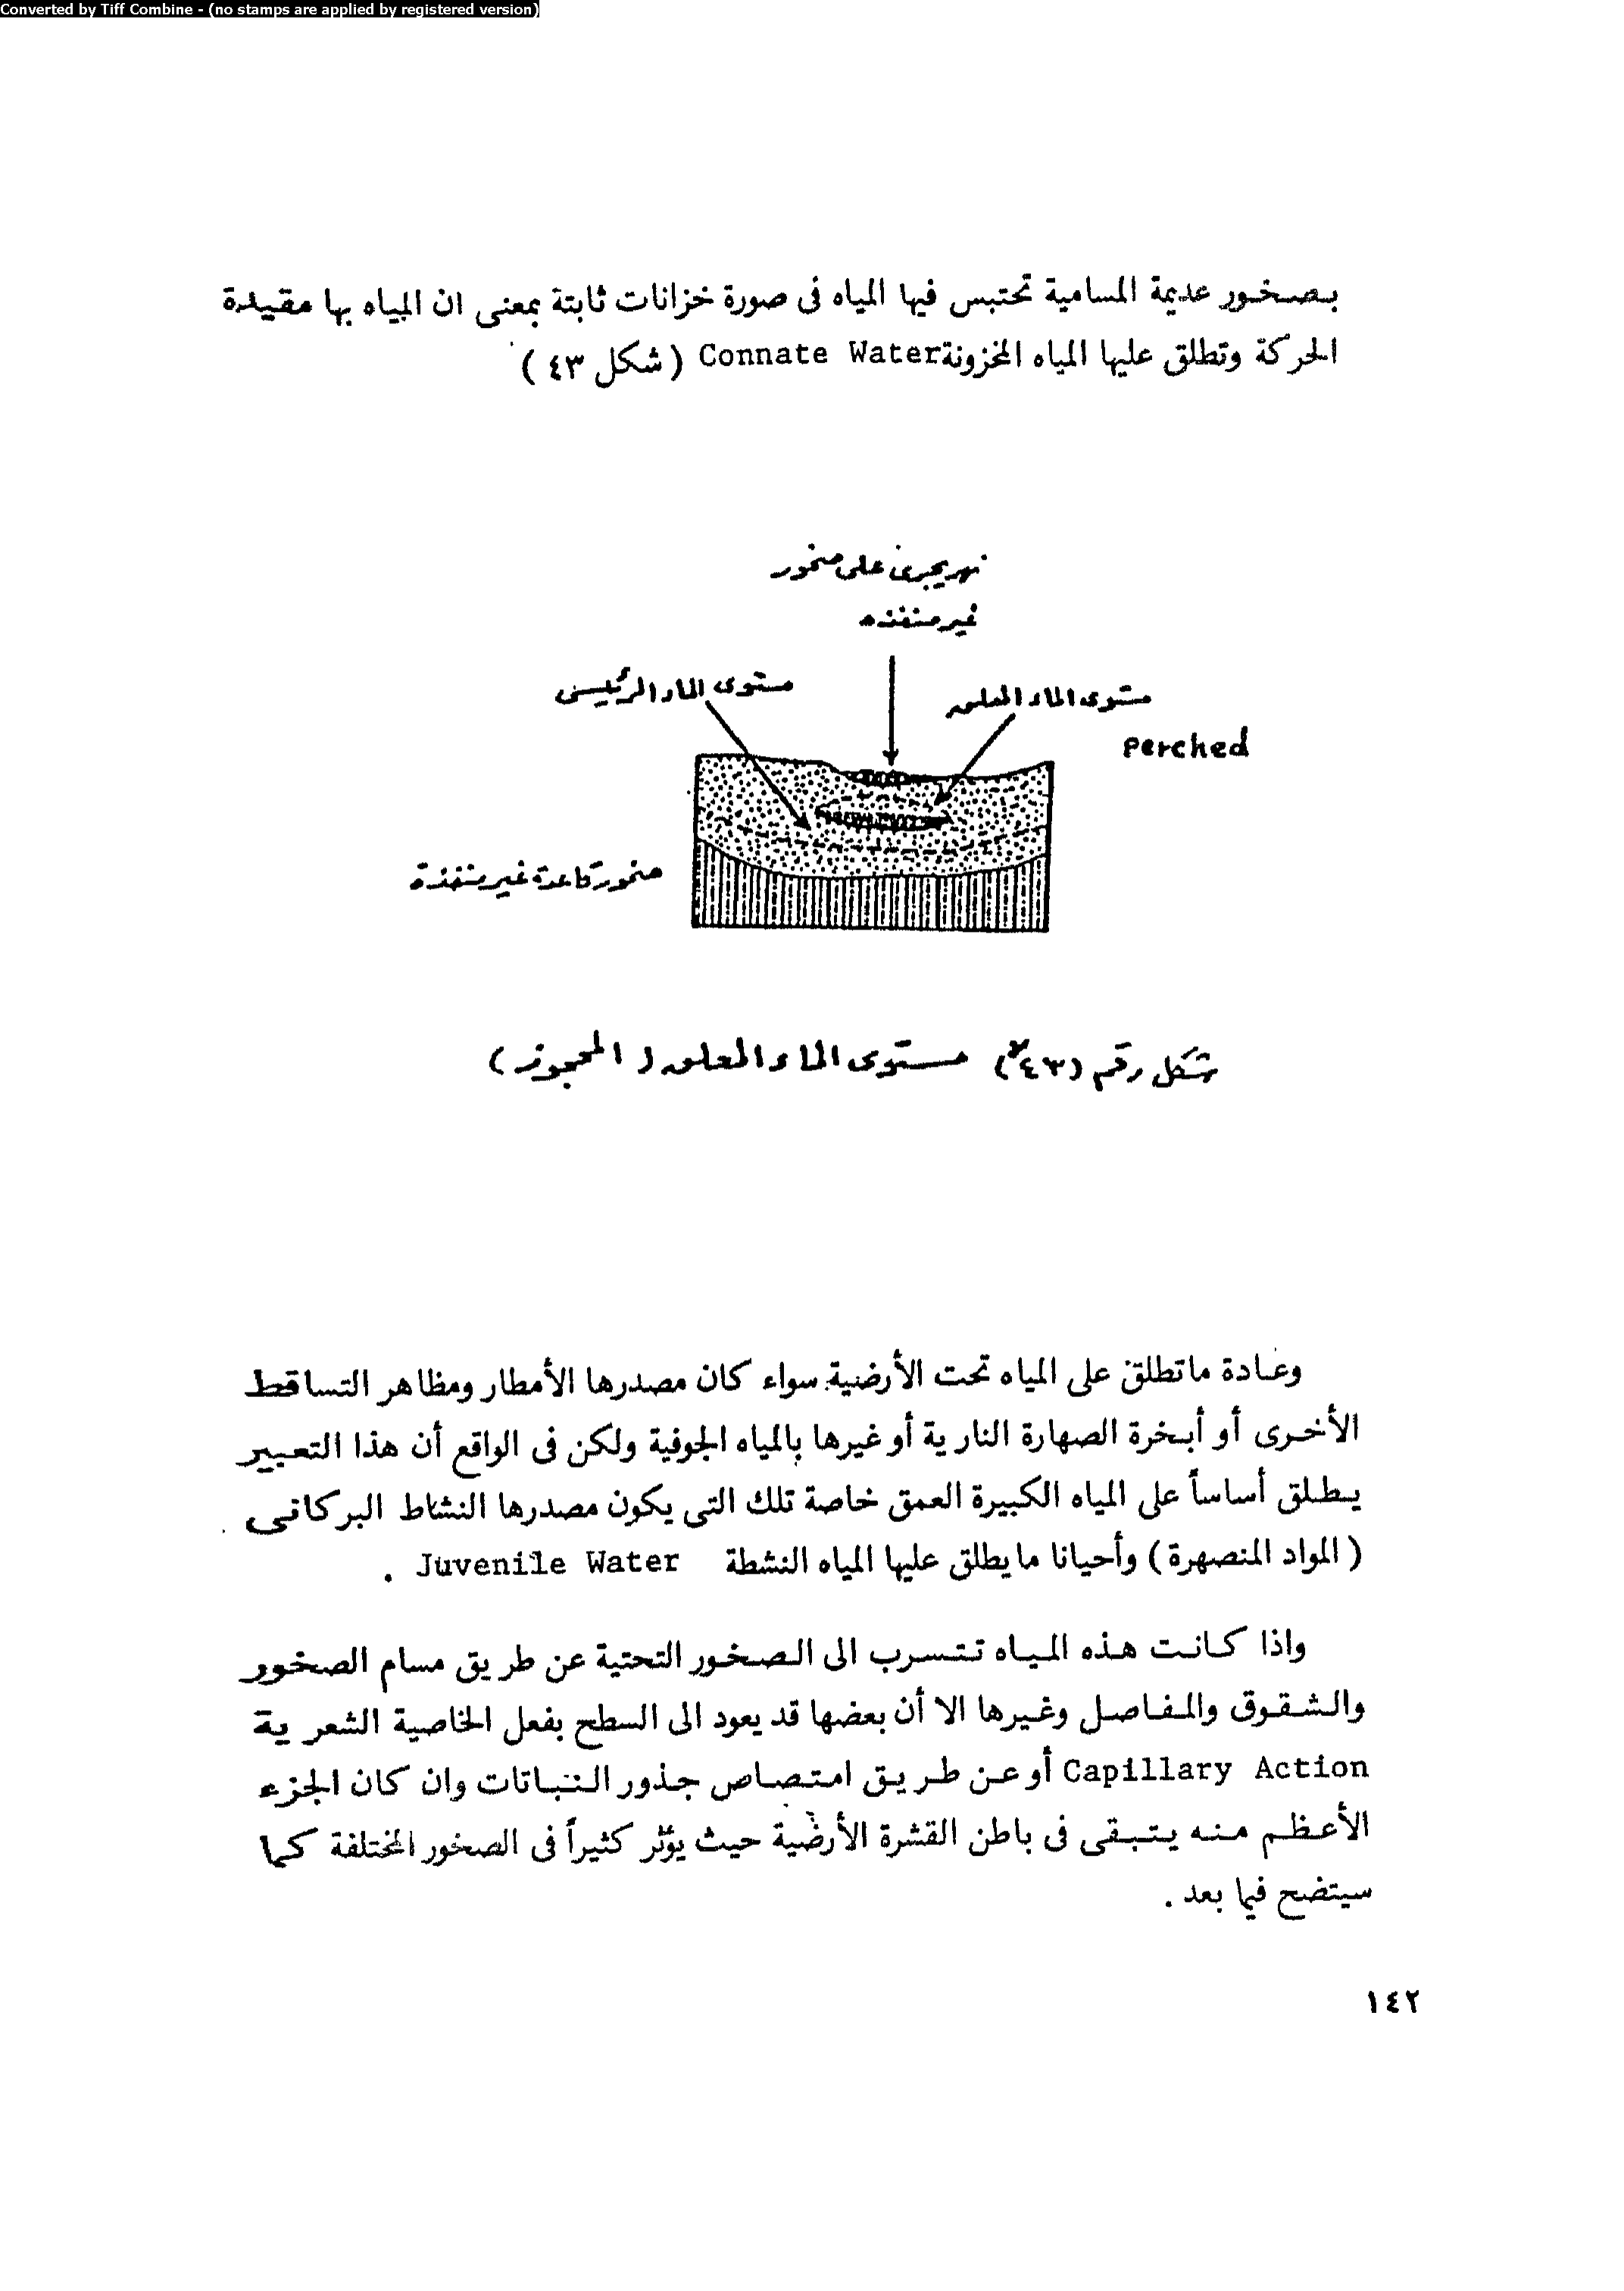 Converted by Tiff Combine - (no stamps are applied by registered version)
بصخور عديمة المسامية تحتبس فيها المياه فى صورة خزانات ثابتة بمعنى ان المياه بها مقيدة
الحركة وتطلق عليها المياه المخزونة Connate Water (شكل ٤٣)
نهر يجرى على صخور
غير منفذه
مستوى الماء الرئيسى
مستوى الماء المعلق
Perched
صخور قاعدة غير منفذة
شكل رقم (٤٣) مستوى الماء المعلق (المحجوز)
وعادة ماتطلق على المياه تحت الأرضية سواء كان مصدرها الأمطار ومظاهر التساقط
الأخرى أو أبخرة الصهارة النارية أو غيرها بالمياه الجوفية ولكن فى الواقع أن هذا التعبير
يطلق أساساً على المياه الكبيرة العمق خاصة تلك التى يكون مصدرها النشاط البركانى
(المواد المنصهرة) وأحيانا مايطلق عليها المياه النشطة Juvenile Water .
واذا كانت هذه المياه تتسرب الى الصخور التحتية عن طريق مسام الصخور
والشقوق والمفاصل وغيرها الا أن بعضها قد يعود الى السطح بفعل الخاصية الشعرية
Capillary Action أو عن طريق امتصاص جذور النباتات وان كان الجزء
الأعظم منه يتبقى فى باطن القشرة الأرضية حيث يؤثر كثيراً فى الصخور المختلفة كما
سيتضح فيما بعد .
١٤٢